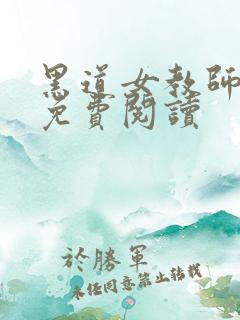 黑道女教師
免費閱讀
於勝軍
未經同意禁止轉載